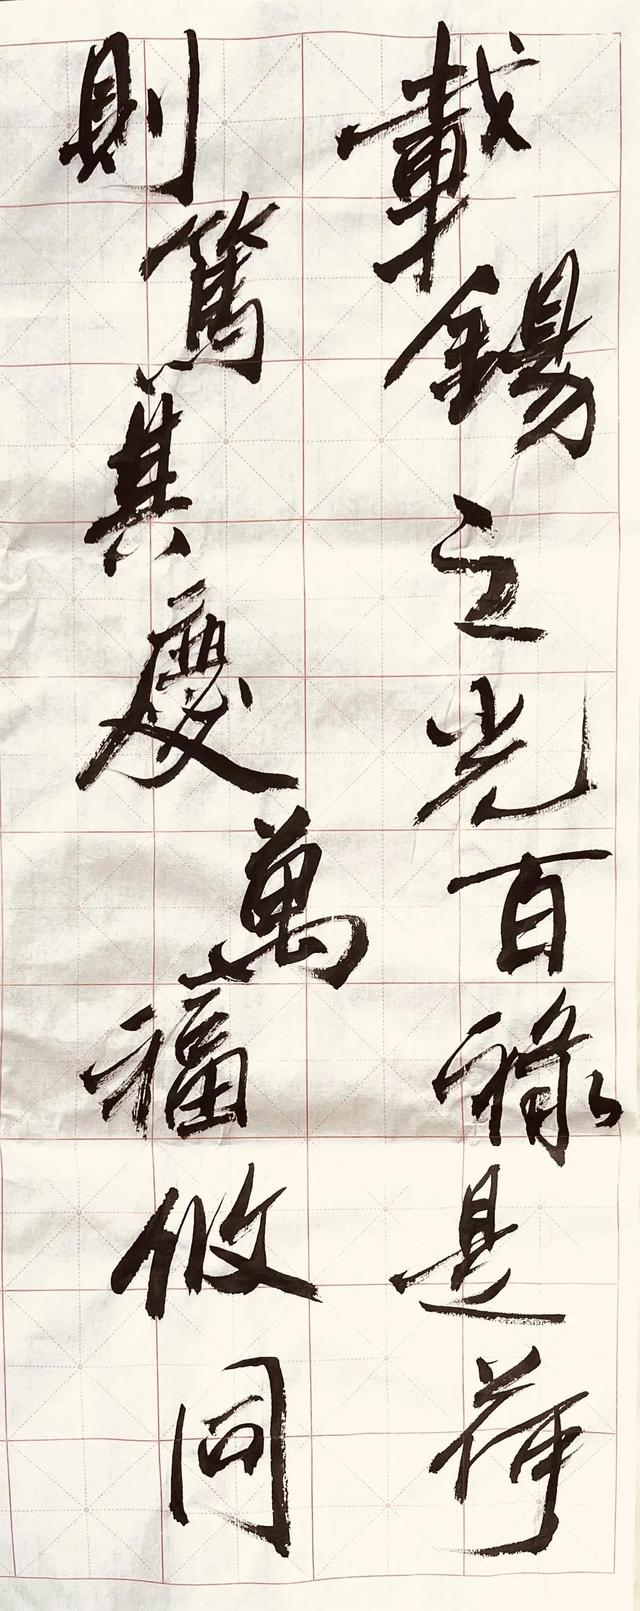 載錫之光百祿是荷
則篤其慶萬福攸同